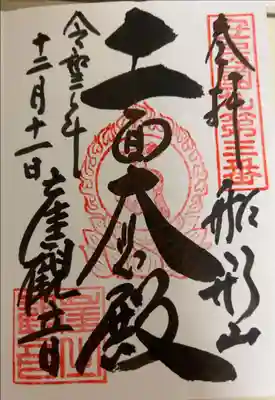 第三番
奉拝
船形山
十一面大悲殿
令和二年
十二月十一日
崖觀音